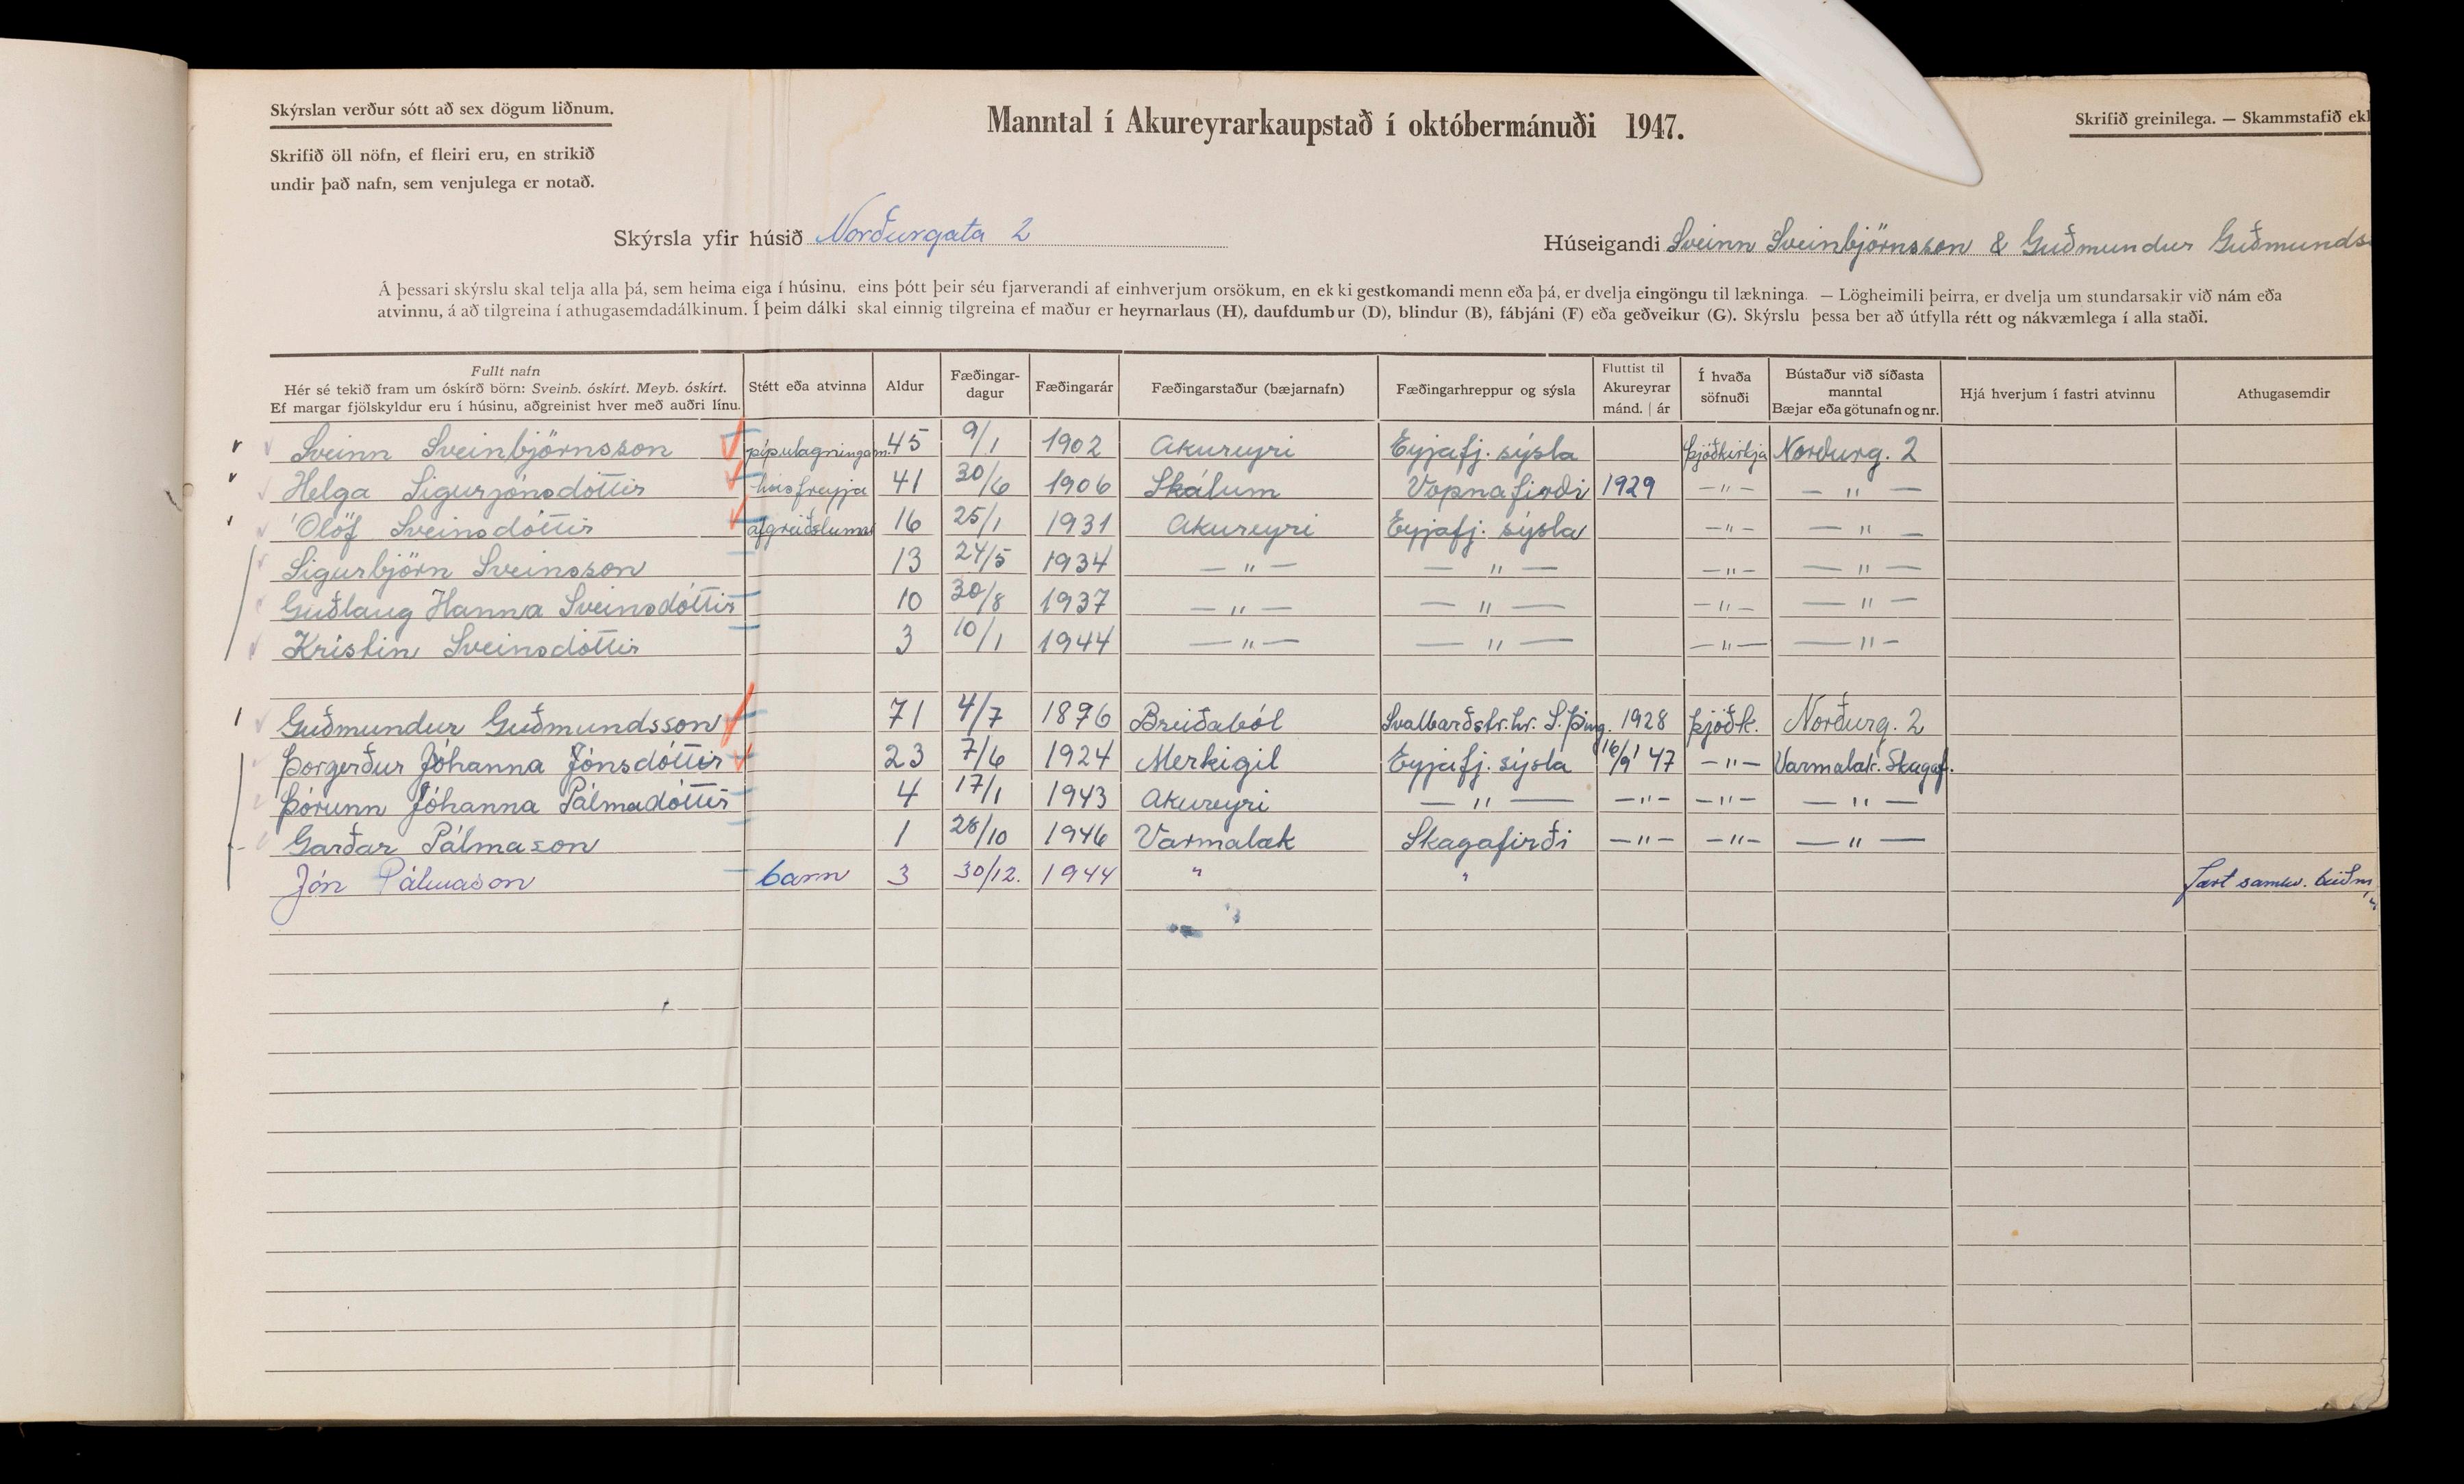 Skýrslan verður sótt að sex dögum liðnum.
Skrifið öll nöfn, ef fleiri eru, en strikið
undir það nafn, sem venjulega er notað.
Manntal í Akureyrarkaupstað í októbermánuði 1947.
Skrifið greinilega. — Skammstafið ekk
Skýrsla yfir húsið Norðurgata 2
Húseigandi Sveinn Sveinbjörnsson & Guðmundur Guðmunds
Á þessari skýrslu skal telja alla þá, sem heima eiga í húsinu, eins þótt þeir séu fjarverandi af einhverjum orsökum, en ekki gestkomandi menn eða þá, er dvelja eingöngu til lækninga. — Lögheimili þeirra, er dvelja um stundarsakir við nám eða
atvinnu, á að tilgreina í athugasemdadálkinum. Í þeim dálki skal einnig tilgreina ef maður er heyrnarlaus (H), daufdumbur (D), blindur (B), fábjáni (F) eða geðveikur (G). Skýrslu þessa ber að útfylla rétt og nákvæmlega í alla staði.
Fullt nafn
Hér sé tekið fram um óskírð börn: Sveinb. óskírt. Meyb. óskírt.
Ef margar fjölskyldur eru í húsinu, aðgreinist hver með auðri línu.
Stétt eða atvinna
Aldur
Fæðingar-
dagur
Fæðingarár
Fæðingarstaður (bæjarnafn)
Fæðingarhreppur og sýsla
Fluttist til
Akureyrar
mánd. | ár
Í hvaða
söfnuði
Bústaður við síðasta
manntal
Bæjar eða götunafn og nr.
Hjá hverjum í fastri atvinnu
Athugasemdir
Sveinn Sveinbjörnsson pípulagningam. 45 9/1 1902 Akureyri Eyjafj. sýsla Þjóðkirkja Norðurg. 2
Helga Sigurjónsdóttir húsfreyja 41 30/6 1906 Skálum Vopnafirði 1929 — " — — " —
Ólöf Sveinsdóttir afgreiðslumær 16 25/1 1931 Akureyri Eyjafj. sýsla — " — — " —
Sigurbjörn Sveinsson 13 24/5 1934 — " — — " — — " — — " —
Guðlaug Hanna Sveinsdóttir 10 30/8 1937 — " — — " — — " — — " —
Kristín Sveinsdóttir 3 10/1 1944 — " — — " — — " — — " —
Guðmundur Guðmundsson 71 4/7 1876 Breiðaból Svalbarðstr.hr. S.Þing. 1928 Þjóðk. Norðurg. 2
Þorgerður Jóhanna Jónsdóttir 23 7/6 1924 Merkigil Eyjafj. sýsla 16/9 '47 — " — Varmalæk. Skagaf.
Þórunn Jóhanna Pálmadóttir 4 17/1 1943 Akureyri — " — — " — — " — — " —
Garðar Pálmason 1 28/10 1946 Varmalæk Skagafirði — " — — " — — " —
Jón Pálmason barn 3 30/12. 1944 " " Fært samkv.